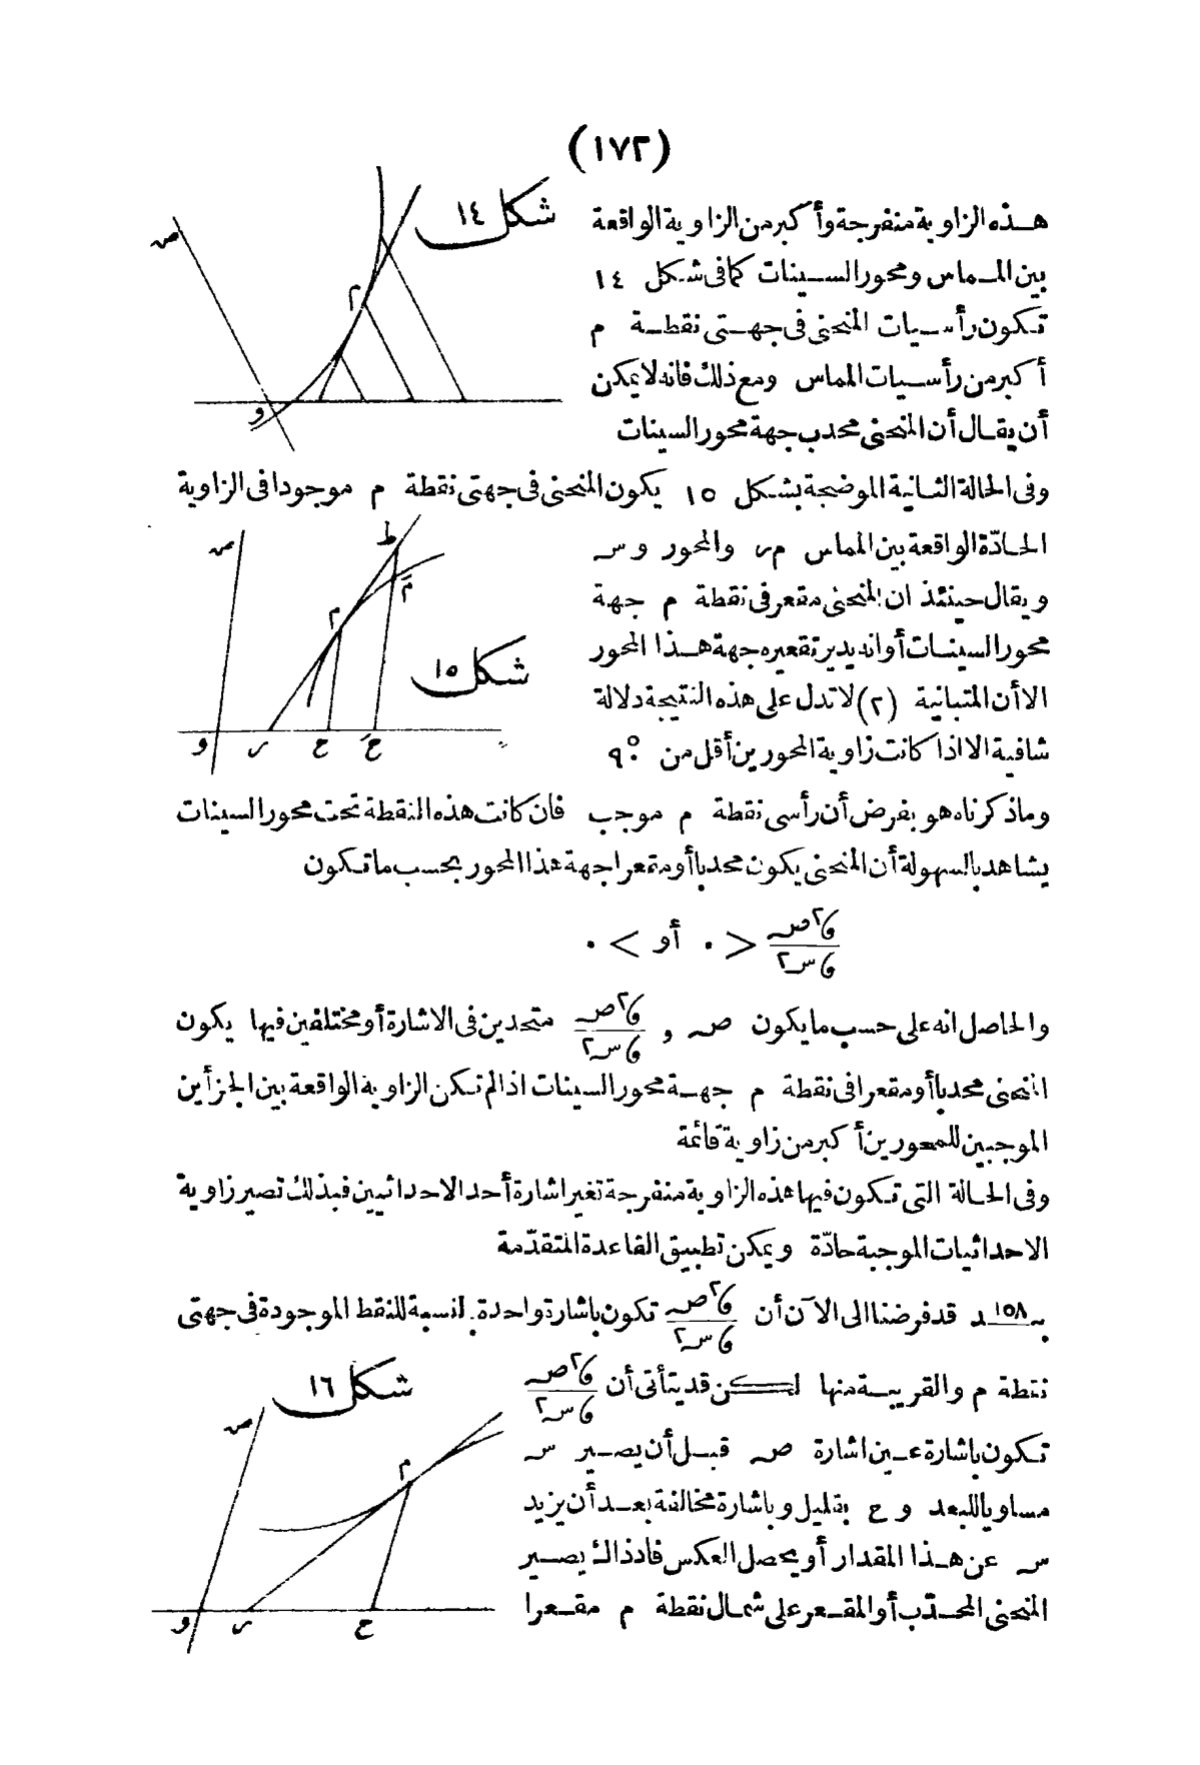 (١٧٢)
شكل ١٤
هذه الزاوية منفرجة وأكبر من الزاوية الواقعة
بين المماس ومحور السينات كما فى شكل ١٤
تكون رأسيات المنحنى فى جهتى نقطة م
أكبر من رأسيات المماس ومع ذلك فانه لا يمكن
أن يقال أن المنحنى محدب جهة محور السينات
ص
م
و
وفى الحالة الثانية الموضحة بشكل ١٥ يكون المنحنى فى جهتى نقطة م موجودا فى الزاوية
الحادّة الواقعة بين المماس م ر والمحور و س
ويقال حينئذ ان المنحنى مقعر فى نقطة م جهة
محور السينات أو انه يدير تقعيره جهة هذا المحور
الا أن المتباينة (٢) لا تدل على هذه النتيجة دلالة
شافية الا اذا كانت زاوية المحورين أقل من ٩٠°
شكل ١٥
ص
ط
م َ
م
و ر ح ح َ
وما ذكرناه هو بفرض أن رأسى نقطة م موجب فان كانت هذه النقطة تحت محور السينات
يشاهد بالسهولة أن المنحنى يكون محدبا أو مقعرا جهة هذا المحور بحسب ما تكون
ى٢ص / ى س٢ < ٠ أو > ٠
والحاصل انه على حسب ما يكون ص و ى٢ص / ى س٢ متحدين فى الاشارة أو مختلفين فيها يكون
المنحنى محدبا أو مقعرا فى نقطة م جهة محور السينات اذا لم تكن الزاوية الواقعة بين الجزأين
الموجبين للمحورين أكبر من زاوية قائمة
وفى الحالة التى تكون فيها هذه الزاوية منفرجة تغير اشارة أحد الاحداثيين فبذلك تصير زاوية
الاحداثيات الموجبة حادّة ويمكن تطبيق القاعدة المتقدّمة
بند ١٥٨ قد فرضنا الى الآن أن ى٢ص / ى س٢ تكون باشارة واحدة بالنسبة للنقط الموجودة فى جهتى
نقطة م والقريبة منها لكن قد يتأتى أن ى٢ص / ى س٢
تكون باشارة عين اشارة ص قبل أن يصير س
مساويا للبعد و ح بقليل وباشارة مخالفة بعد أن يزيد
س عن هذا المقدار أو يحصل العكس فاذ ذاك يصير
المنحنى المحدّب أو المقعر على شمال نقطة م مقعرا
شكل ١٦
ص
م
و ر ح